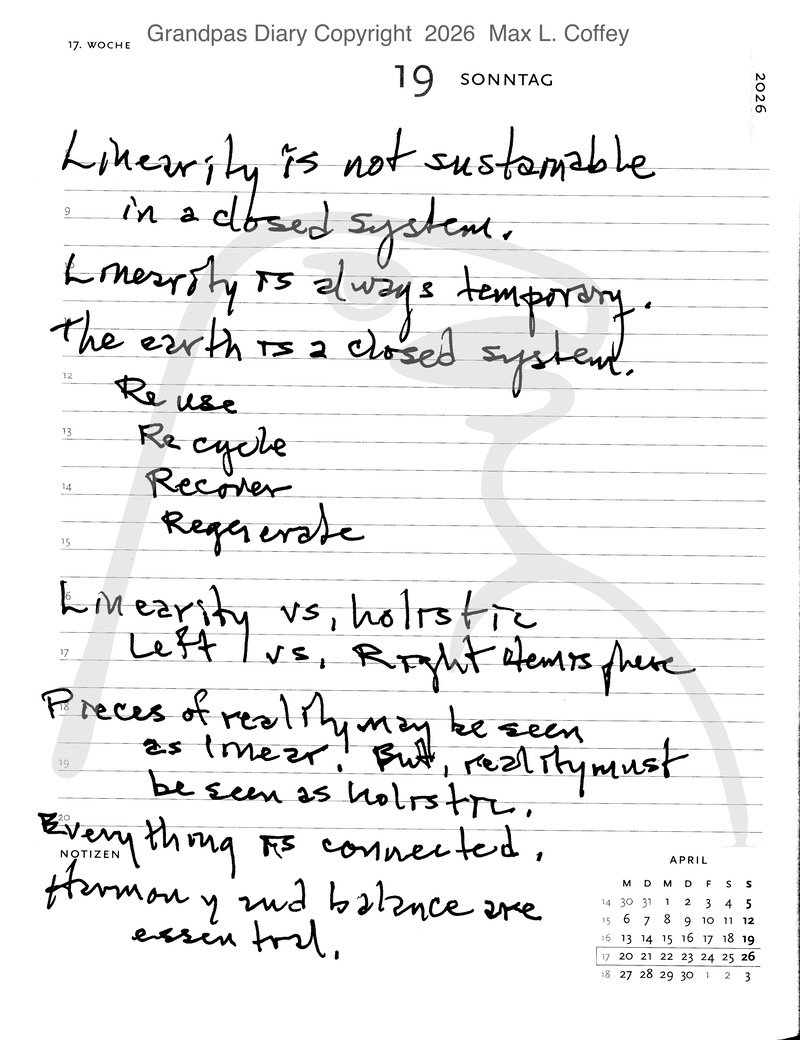 Grandpas Diary Copyright 2026 Max L. Coffey
17. WOCHE
19 SONNTAG
2026
Linearity is not sustainable
9
in a closed system.
Linearity is always temporary.
The earth is a closed system.
12
Re use
13
Re cycle
14
Recover
Regenerate
15
Linearity vs, holistic
17
Left vs, Right Hemisphere
18
Pieces of reality may be seen
as linear! But, reality must
19
be seen as holistic.
20
Everything is connected.
NOTIZEN
Harmony and balance are
essential.
APRIL
M D M D F S S
14 30 31 1 2 3 4 5
15 6 7 8 9 10 11 12
16 13 14 15 16 17 18 19
17 20 21 22 23 24 25 26
18 27 28 29 30 1 2 3